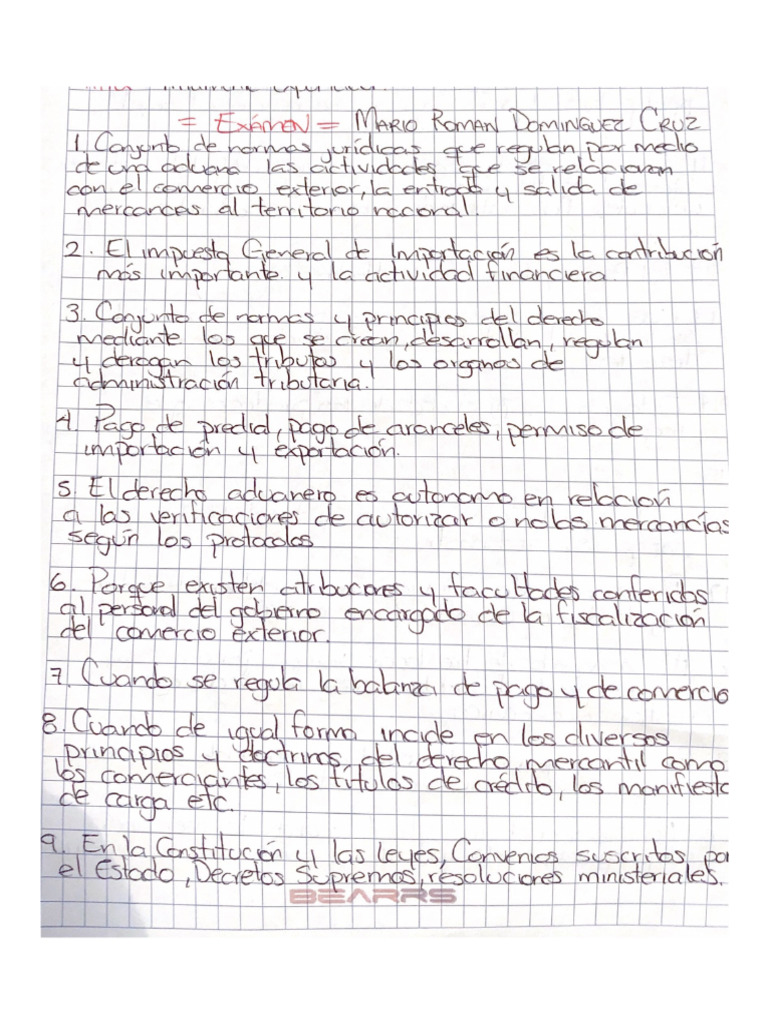 = EXÁMEN = MARIO ROMAN DOMINGUEZ CRUZ
1. Conjunto de normas jurídicas que regulan por medio
de una aduana las actividades que se relacionan
con el comercio exterior, la entrada y salida de
mercancías al territorio nacional.
2. El impuesto General de Importación es la contribución
más importante y la actividad financiera.
3. Conjunto de normas y principios del derecho
mediante los que se crean, desarrollan, regulan
y derogan los tributos y los organos de
administración tributaria.
4. Pago de predial, pago de aranceles, permiso de
importación y exportación.
5. El derecho aduanero es autonomo en relación
a las verificaciones de autorizar o no las mercancías
según los protocolos
6. Porque existen atribuciones y facultades conferidas
al personal del gobierno encargado de la fiscalización
del comercio exterior.
7. Cuando se regula la balanza de pago y de comercio
8. Cuando de igual forma incide en los diversos
principios y doctrinas del derecho mercantil como
los comerciantes, los títulos de crédito, los manifiesto
de carga etc.
9. En la Constitución y las leyes, Convenios suscritos por
el Estado, Decretos Supremos, resoluciones ministeriales.
BEARRS